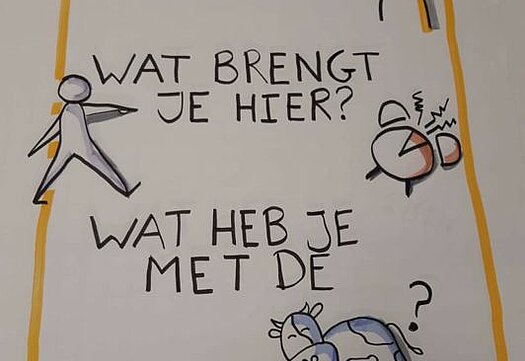 WAT BRENGT
JE HIER?
WAT HEB JE
MET DE
?